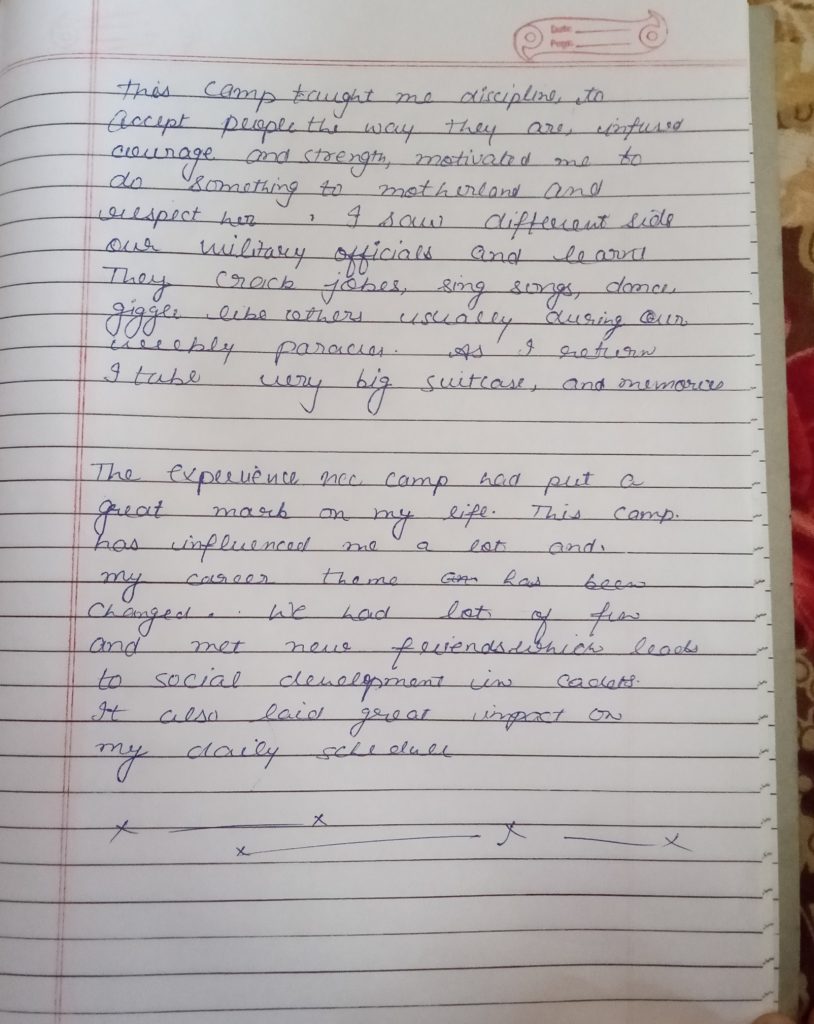 Date:
Page:
This camp taught me discipline, to
Accept people the way they are, infused
courage and strength, motivated me to
do something to motherland and
respect her . I saw different side
our military officials and learnt
They crack jokes, sing songs, dance,
giggle like others usually during our
weekly parades. As I return
I take very big suitcase, and memories
The experience ncc camp had put a
great mark on my life. This camp.
has influenced me a lot and.
my career theme has been
changed. . We had lot of fun
and met new friends which leads
to social development in cadets.
It also laid great impact on
my daily schedule
x x
x x x